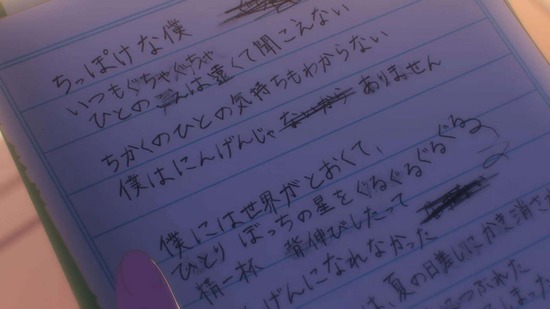 ちっぽけな僕
いつもぐちゃぐちゃ
ひとの声は遠くて聞こえない
ちかくのひとの気持ちもわからない
僕はにんげんじゃ ありません
僕には世界がとおくて、
ひとりぼっちの星をぐるぐるぐるぐる
精一杯 背伸びしたって
んげんになれなかった
は、夏の日差しにかき消さ
つぶれた
しまった